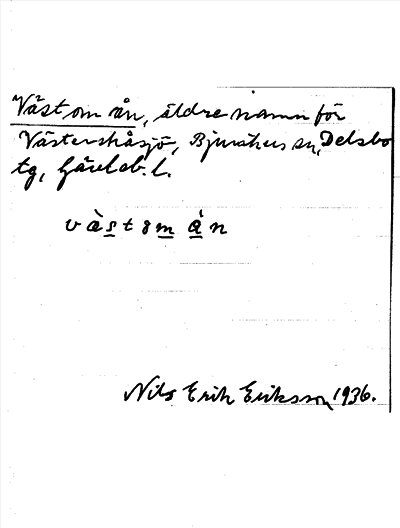 Väst om ån, äldre namn för
Västerstråsjö, Bjuråkers sn, Delsbo
tg, Gävleb. l.
v à s t ɜ m ǻ n
Nils Erik Eriksson, 1936.